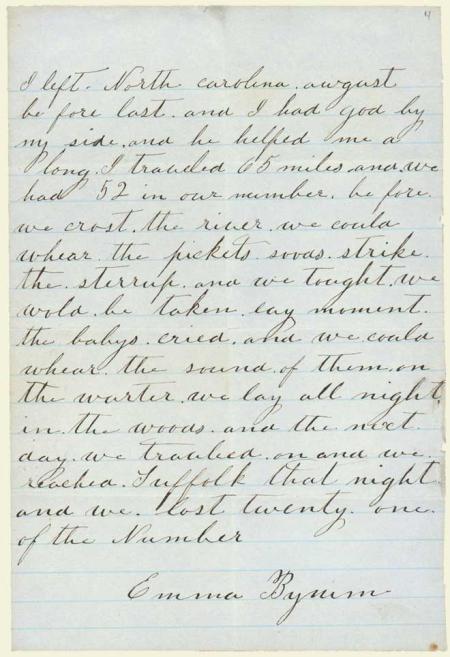 4
I left. North carolina. awgust
be fore last. and I had god by
my side. and he helped me a
long. I travled 65 miles and. we
had 52 in our number. be fore.
we crost. the river. we could
whear. the pickets. soods. strike.
the. sterrup. and we tought. we
wold. be taken. eay moment.
the babys. cried. and we could
whear. the sound. of them. on
the warter. we lay all night.
in. the woods. and the next
day. we travled. on and we.
reached. Suffolk that night.
and we. lost twenty. one.
of the Number
Emma Bynum